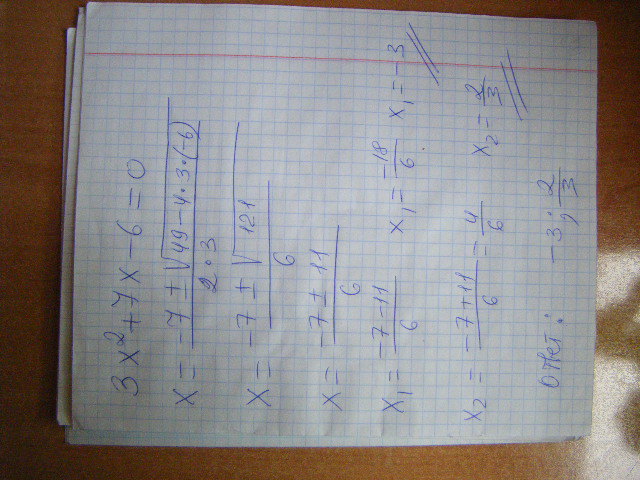 3x²+7x-6=0
x = (-7 ± √(49-4·3·(-6)))/(2·3)
x = (-7 ± √121)/6
x = (-7 ± 11)/6
x₁ = (-7-11)/6 x₁ = -18/6 x₁ = -3
x₂ = (-7+11)/6 = 4/6 x₂ = 2/3
Ответ: -3; 2/3